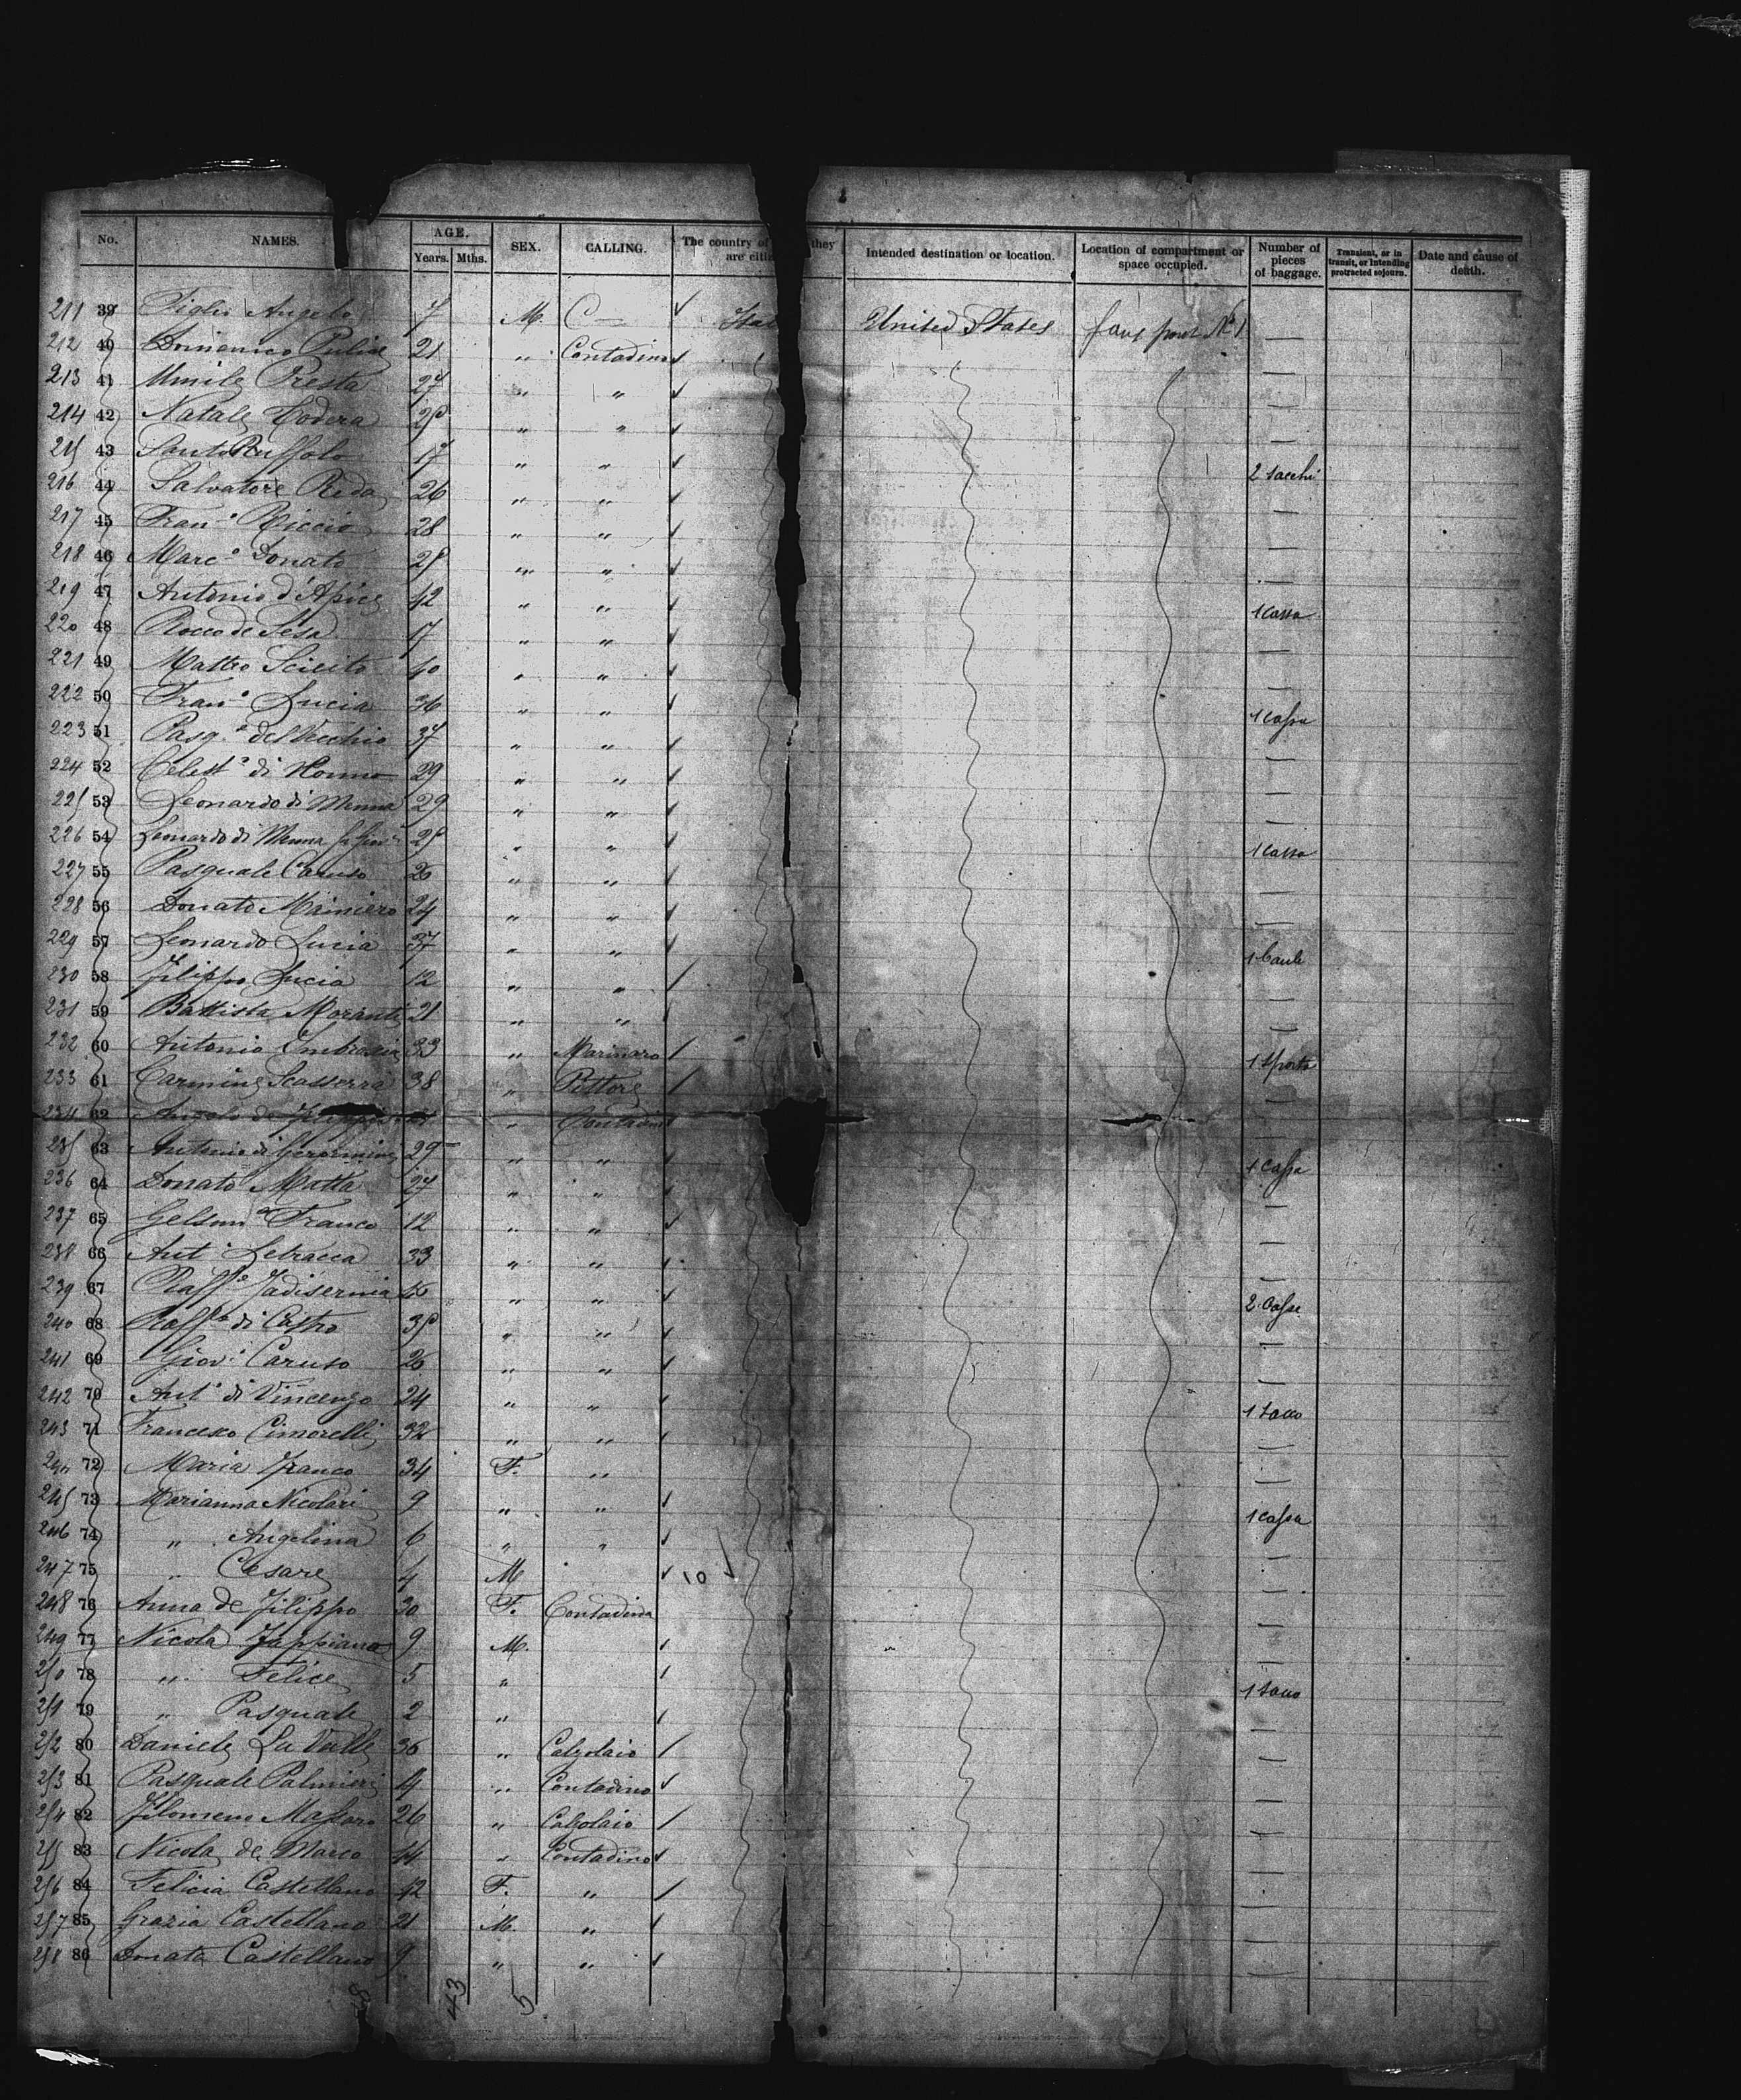 No. NAMES. AGE. Years. Mths. SEX. CALLING. The country of they are citi Intended destination or location. Location of compartment or space occupied. Number of pieces of baggage. Transient, or in transit, or intending protracted sojourn. Date and cause of death.
211 39 Figlio Angelo 7 M. C Ital United States
212 40 Domenico 21 " Contadino
213 41 Umile Presta 27 " "
214 42 Natale Codera " "
215 43 Santo Ruffolo 17 " " 2 sacchi
216 44 Salvatore Reda 26 " "
217 45 Fran.o Riccio 28 " "
218 46 Marc.o Donato " "
219 47 Antonio d'Apice 42 " " 1 cassa
220 48 Rocco de Sesa 17 " "
221 49 Matteo 40 " "
222 50 Fran.o Lucia 36 " " 1 cassa
223 51 Pasq.e del Vecchio 37 " "
224 52 Celest.o di 29 " "
225 53 Leonardo di Menna 29 " "
226 54 Leonardo di Menna " " 1 cassa
227 55 Pasquale Caruso 26 " "
228 56 Donato Mainiero 24 " "
229 57 Leonardo Lucia 37 " " 1 baule
230 58 Filippo Lucia 12 " "
231 59 Battista Moranti 21 " "
232 60 Antonio 33 " Marinaro 1 sporta
233 61 Carmine Scasserra 38 " Pittore
234 62 Angelo de Filippo " Contadino
235 63 Antonio di 29 " " 1 cassa
236 64 Donato Matta 27 " "
237 65 Gelsom.o Franco 12 " "
238 66 Ant.o Letracca 33 " "
239 67 Raff.e Jadisernia " " 2 Casse
240 68 Raff.e di Castro " "
241 69 Giov.i Caruso 26 " "
242 70 Ant.o di Vincenzo 24 " " 1 sacco
243 71 Francesco Cimorelli 32 " "
244 72 Maria Franco 34 F. "
245 73 Marianna Nicolari 9 " " 1 cassa
246 74 " Angelina 6 " "
247 75 " Cesare 4 M 10
248 76 Anna de Filippo 30 F. Contadina
249 77 Nicola 9 M.
250 78 " Felice 5 " 1 sacco
251 79 " Pasquale 2 "
252 80 Daniele La Valle 36 " Calzolaio
253 81 Pasquale Palmieri " Contadino
254 82 Filomeno Massaro 26 " Calzolaio
255 83 Nicola de Marco 44 " Contadino
256 84 Felicia Castellano 42 F. "
257 85 Grazia Castellano 21 M. "
258 86 Donata Castellano 9 " "
43 5